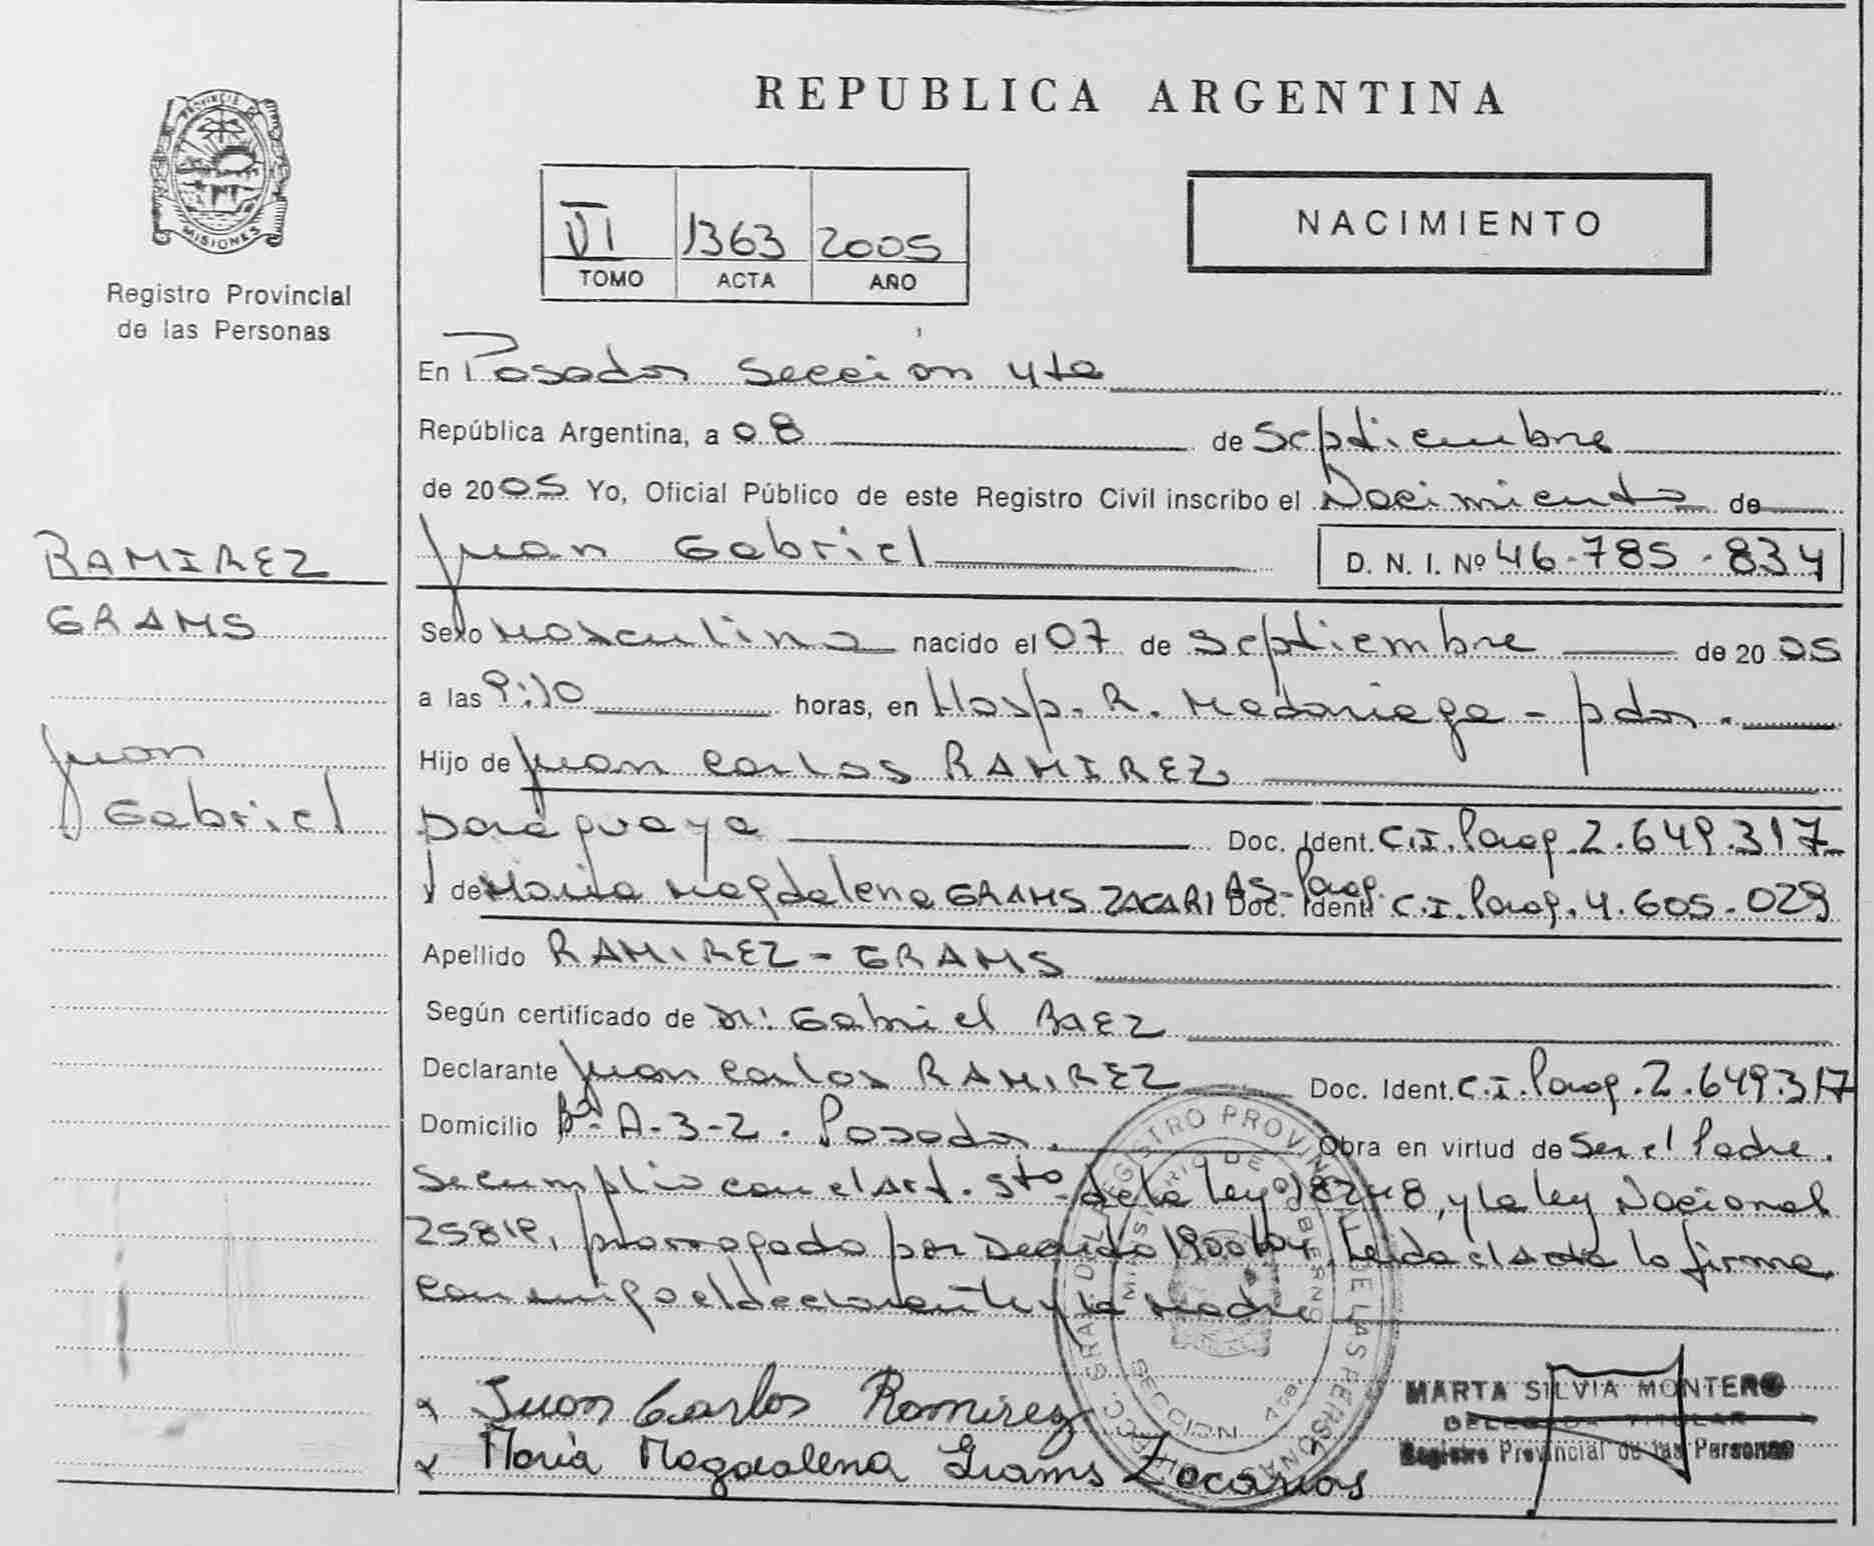 PROVINCIA DE
MISIONES
Registro Provincial
de las Personas
RAMIREZ
GRAMS
Juan
Gabriel
REPUBLICA ARGENTINA
VI 1363 2005
TOMO ACTA AÑO
NACIMIENTO
En Posadas Sección 4ta
República Argentina, a 08 de Septiembre
de 2005 Yo, Oficial Público de este Registro Civil inscribo el Nacimiento de
Juan Gabriel D. N. I. Nº 46-785-834
Sexo Masculino nacido el 07 de Septiembre de 2005
a las 9:10 horas, en Hosp. R. Madariaga - pdas.
Hijo de Juan Carlos RAMIREZ
paraguaya Doc. Ident. C.I. Parag. 2.649.317
y de María Magdalena GRAMS ZACARIAS - Parag. Doc. Ident. C.I. Parag. 4.605.029
Apellido RAMIREZ - GRAMS
Según certificado de Dr. Gabriel BAEZ
Declarante Juan Carlos RAMIREZ Doc. Ident. C.I. Parag. 2.649.317
Domicilio Bº A-3-2. Posadas. Obra en virtud de Ser el Padre.
Se cumplio con el Art. 5to de la ley 18248, y la ley Nacional
25819, prorrogado por Decreto 1900/04. Leida el acta la firma
conmigo el declarante y la Madre
Juan Carlos Ramirez
María Magdalena Grams Zacarias
MARTA SILVIA MONTERO
DELEGADA TITULAR
Registro Provincial de las Personas
REGISTRO PROVINCIAL DE LAS PERSONAS
MINISTERIO DE GOBIERNO
SECCION